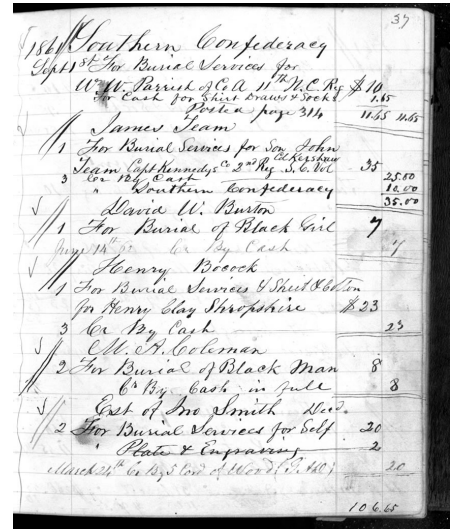 37
1861 Southern Confederacy
Sept 1st For Burial Services for
Wm W. Parrish of Co A 11th N.C. Reg $10
For Cash for Shirt Draws & Socks 1.65
Posted page 314 11.65 11.65
James Team
1 For Burial Services for Son John
Team Capt Kennedys Co 2nd Reg S.C. Vol Col Kershaw 35
3 Cr By Cash 25.00
" Southern Confederacy 10.00
35.00
David W. Burton
1 For Burial of Black Girl 7
14th Cr By Cash 7
Henry Bocock
1 For Burial Services & Sheet & Cotton
for Henry Clay Shropshire $23
3 Cr By Cash 23
M. A. Coleman
2 For Burial of Black Man 8
Cr By Cash in full 8
Est of Jno Smith Decd
2 For Burial Services for Self 20
" Plate & Engraving 2
March 24th Cr By 5 Cord of Wood 20
106.65